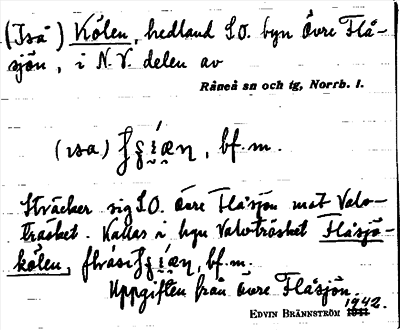 (Isa) Kölen, hedland S.O. byn Övre Flå-
sjön, i N.V. delen av
Råneå sn och tg, Norrb. l.
(ısa) bf. m.
Sträcker sig S.O. Övre Flåsjön mot Valv-
träsket. Kallas i byn Valvträsket Flåsjö-
kölen, bf. m.
Uppgiften från Övre Flåsjön.
1942.
EDVIN BRÄNNSTRÖM